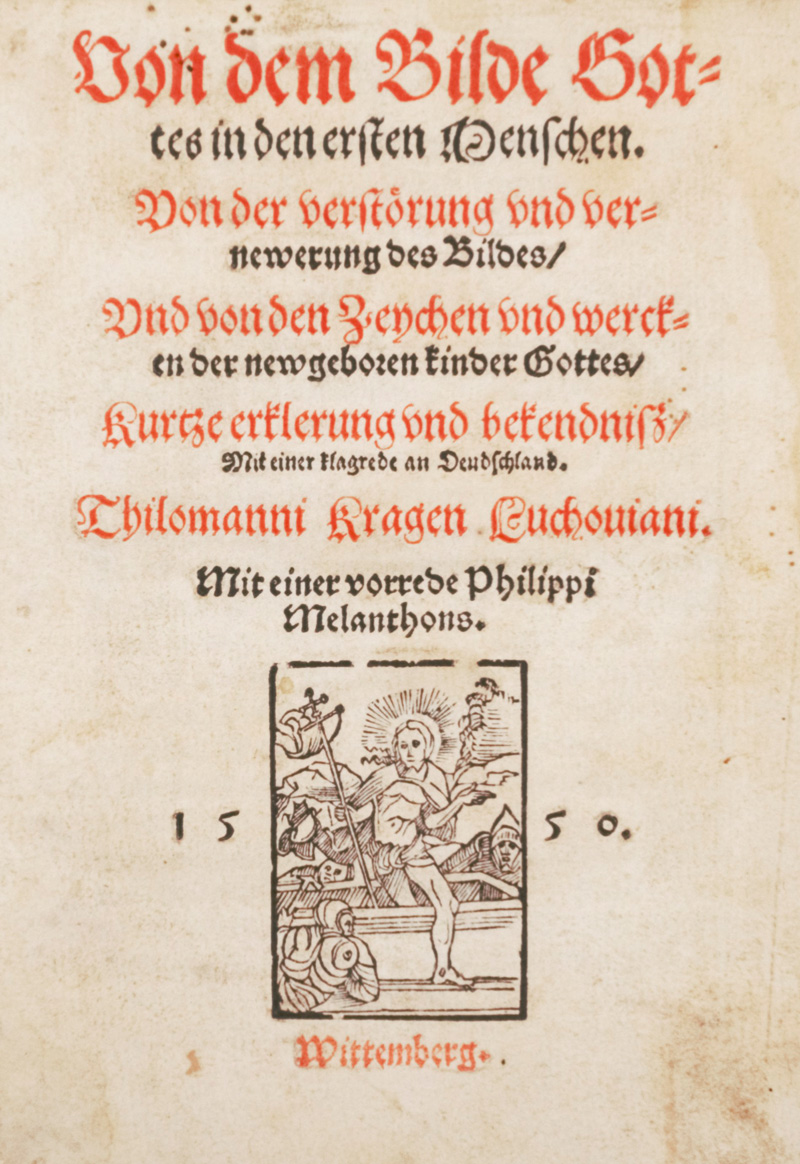 Von dem Bilde Got⸗
tes in den erſten Menſchen.
Von der verſtörung vnd ver⸗
newerung des Bildes/
Vnd von den Zeychen vnd werck⸗
en der newgeboꝛen kinder Gottes/
Kurtze erklerung vnd bekendniſz/
Mit einer klagrede an Deudſchland.
Thilomanni Kragen Luchouiani.
Mit einer vorrede Philippi
Melanthons.
1 5 5 0.
Wittemberg.